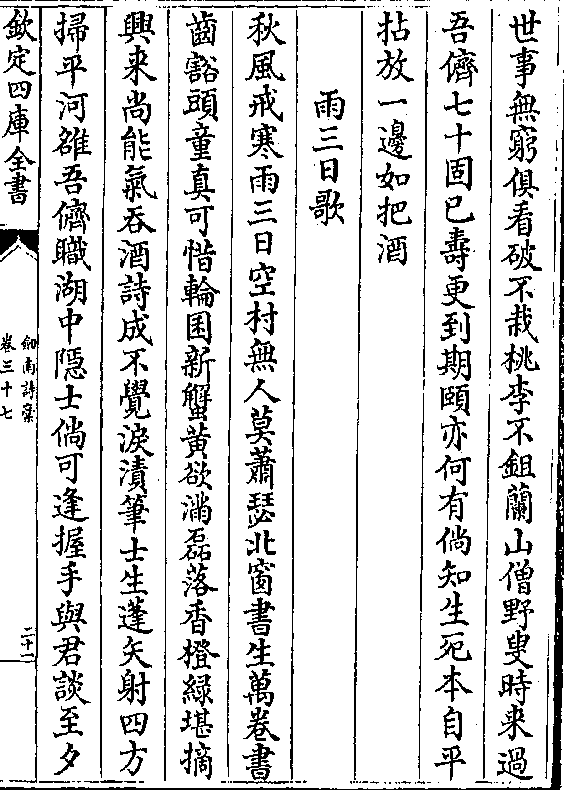 世事無窮俱看破不栽桃李不鉏蘭山僧野叟時来過
吾儕七十固已壽更到期頤亦何有倘知生死本自平
拈放一邊如把酒
雨三日歌
秋風戒寒雨三日空村無人莫蕭瑟北窗書生萬卷書
齒豁頭童真可惜輪囷新蟹黄欲滿磊落香橙緑堪摘
興来尚能氣吞酒詩成不覺淚漬筆士生蓬矢射四方
掃平河雒吾儕職湖中隠士倘可逢握手與君談至夕
欽定四庫全書
劔南詩藁
卷三十七
二十一